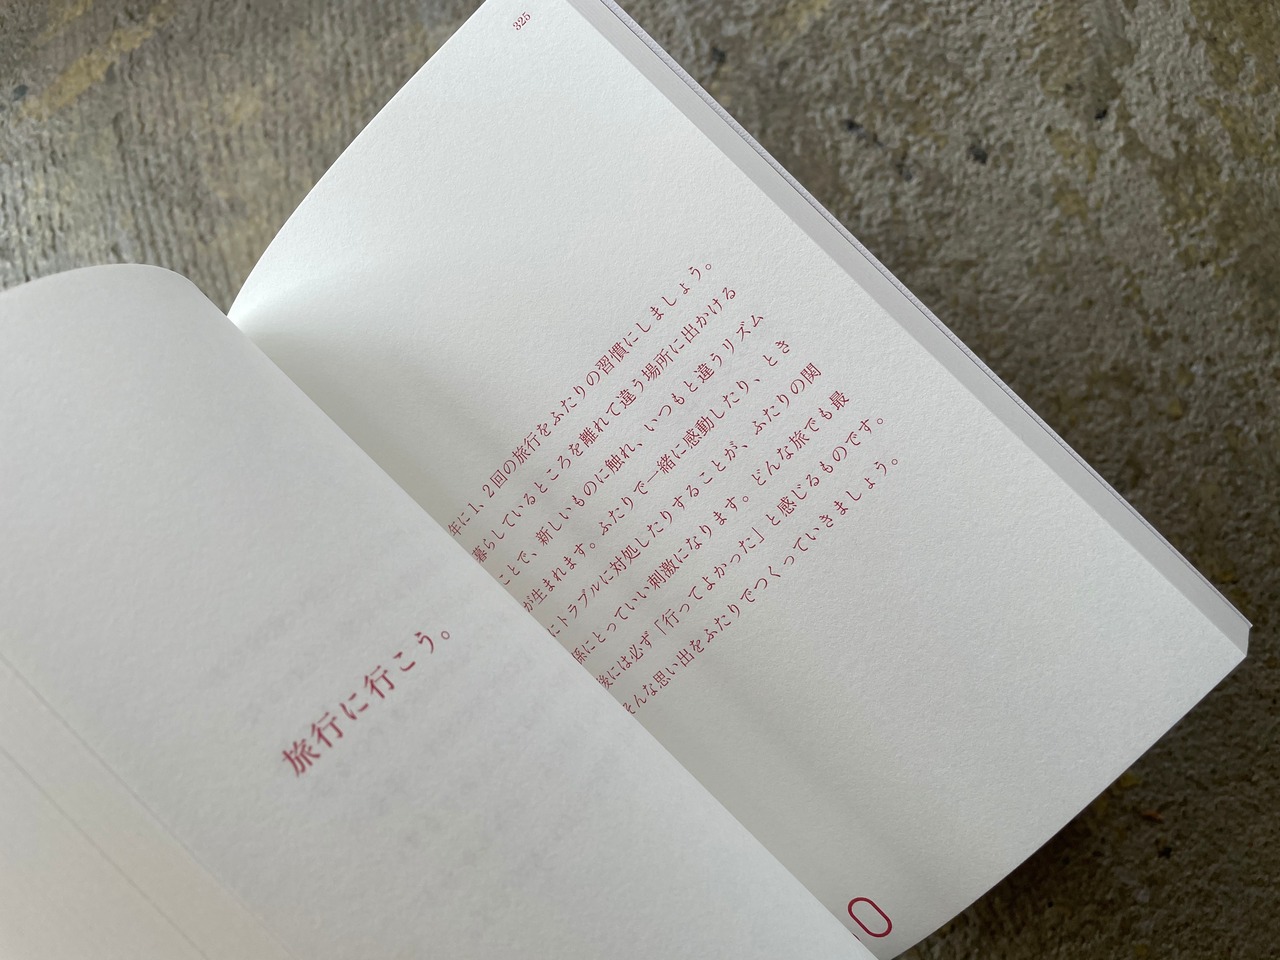 旅行に行こう。
325
年に1、2回の旅行をふたりの習慣にしましょう。
暮らしているところを離れて違う場所に出かける
ことで、新しいものに触れ、いつもと違うリズム
が生まれます。ふたりで一緒に感動したり、とき
にトラブルに対処したりすることが、ふたりの関
係にとっていい刺激になります。どんな旅でも最
後には必ず「行ってよかった」と感じるものです。
そんな思い出をふたりでつくっていきましょう。
0